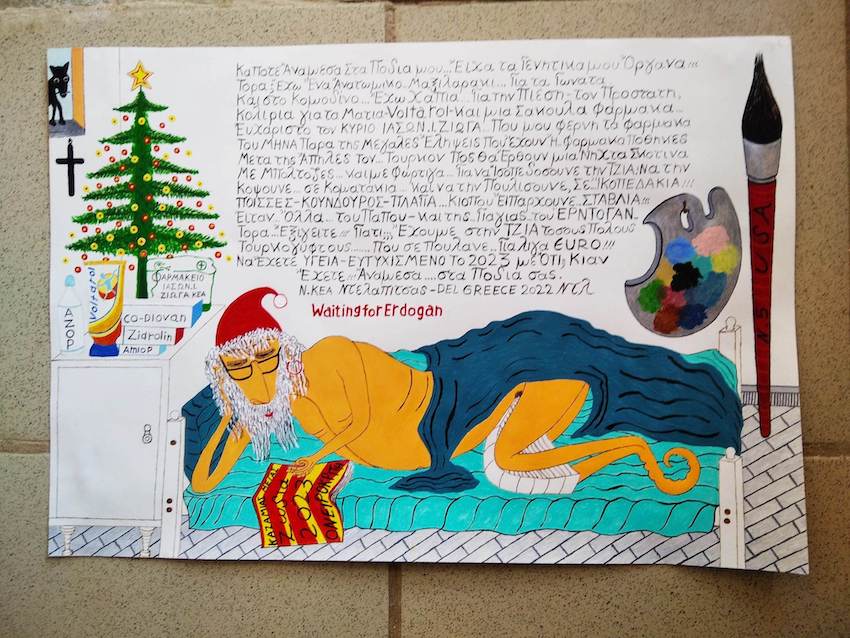 Κάποτε Άναμεσα Στα Πόδια μου... Είχα τα Γενητικα μου Όργανα!!!
Τορα Έχω Ένα Ανατωμικο Μαξιλαρακι... Για τα Γωνατα
Και στο Κομωδινο... Έχω Χαπια... Για την Πιεση-τον Προστατη,
Κολιρια για τα Ματια-Voltarol-και μια Σακουλα Φαρμακα...
Ευχαριστο τον ΚΥΡΙΟ ΙΑΣΩΝ.Ι.ΖΙΩΓΑ... Που μου φερνη τα φαρμακα
Του ΜΗΝΑ Παρα της Μεγαλες Έληψεις που Έχουν Η Φαρμακαποθηκες
Μετα της Απηλες τον Τουρκον Πος Θα Έρθουν μια Νηχτα Σκοτινα
Με Μπολτοζες... και με Φορτιγα... Για να Ισοπεδοσουνε την ΤΖΙΑ: Να την
Κοψουνε... σε Κοματακια... και να την Πουλισουνε, Σε ΙΚΟΠΕΔΑΚΙΑ!!!
ΠΟΙΣΣΕΣ-ΚΟΥΝΔΟΥΡΟΣ-ΠΛΑΓΙΑ... Κι Οπου Έιπαρχουνε ΣΤΑΒΛΙΑ!!!
Ειταν Όλλα... του Παπου-και της Γιαγιας του ΕΡΝΤΟΓΑΝ.
Τορα Έξιγειτε!!! Γιατι;;; Έχουμε στην ΤΖΙΑ τοσους Πολους
Τουρκογυφτους...... που σε πουλανε... Για λιγα EURO!!!
Να Έχετε ΥΓΕΙΑ-ΕΥΤΥΧΙΣΜΕΝΟ το 2023 με Ότι Κιαν
Έχετε... Άναμεσα.... στα Ποδια σας.
Ν.ΚΕΑ Ντελαπιτσας-DEL GREECE 2022 Ντλ
Waiting for Erdogan
ΦΑΡΜΑΚΕΙΟ
ΙΑΣΩΝ.Ι.
ΖΙΩΓΑ ΚΕΑ
Voltarol
ΑΖΟΡ
co-Diovan
Zidrolin
ΑΜΙΟΡ
U.S.A
N5
ΚΑΖΑΜΙΑ
2023
ΟΝΕΙΡΟΚΡΙΤΗΣ